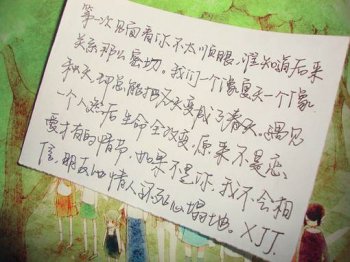 第一次见面看你不太顺眼，谁知道后来
关系那么密切。我们一个像夏天一个像
秋天，却总能把冬天变成了春天。遇见
一个人然后生命全改变，原来不是恋
爱才有的情节。如果不是你，我不会相
信，朋友比情人还死心塌地。XJJ.